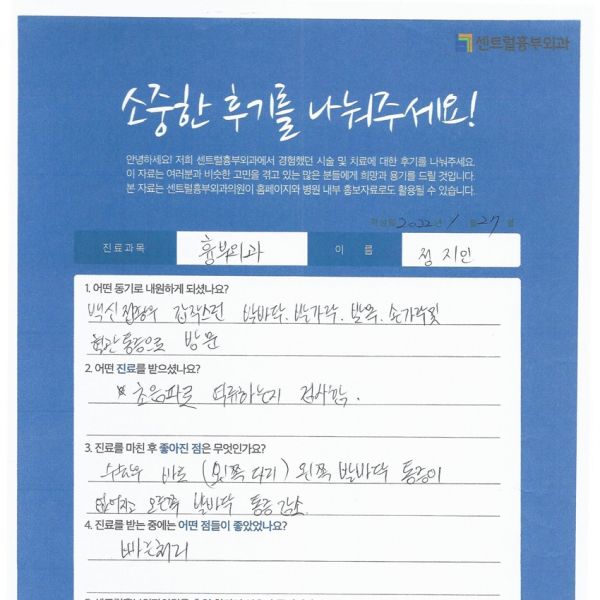 센트럴흉부외과
소중한 후기를 나눠주세요!
안녕하세요! 저희 센트럴흉부외과에서 경험했던 시술 및 치료에 대한 후기를 나눠주세요.
이 자료는 여러분과 비슷한 고민을 겪고 있는 많은 분들에게 희망과 용기를 드릴 것입니다.
본 자료는 센트럴흉부외과의원이 홈페이지와 병원 내부 홍보자료로도 활용될 수 있습니다.
작성일 2022년 1월 27일
진료과목 흉부외과 이 름 정지인
1. 어떤 동기로 내원하게 되셨나요?
백신접종후 갑작스런 발바닥. 발가락. 발목. 손가락및
혈관통증으로 방문
2. 어떤 진료를 받으셨나요?
초음파로 역류하는지 검사함.
3. 진료를 마친 후 좋아진 점은 무엇인가요?
바로 (왼쪽 다리) 왼쪽 발바닥 통증이
없어지고 오른쪽 발바닥 통증 감소.
4. 진료를 받는 중에는 어떤 점들이 좋았었나요?
빠른처리